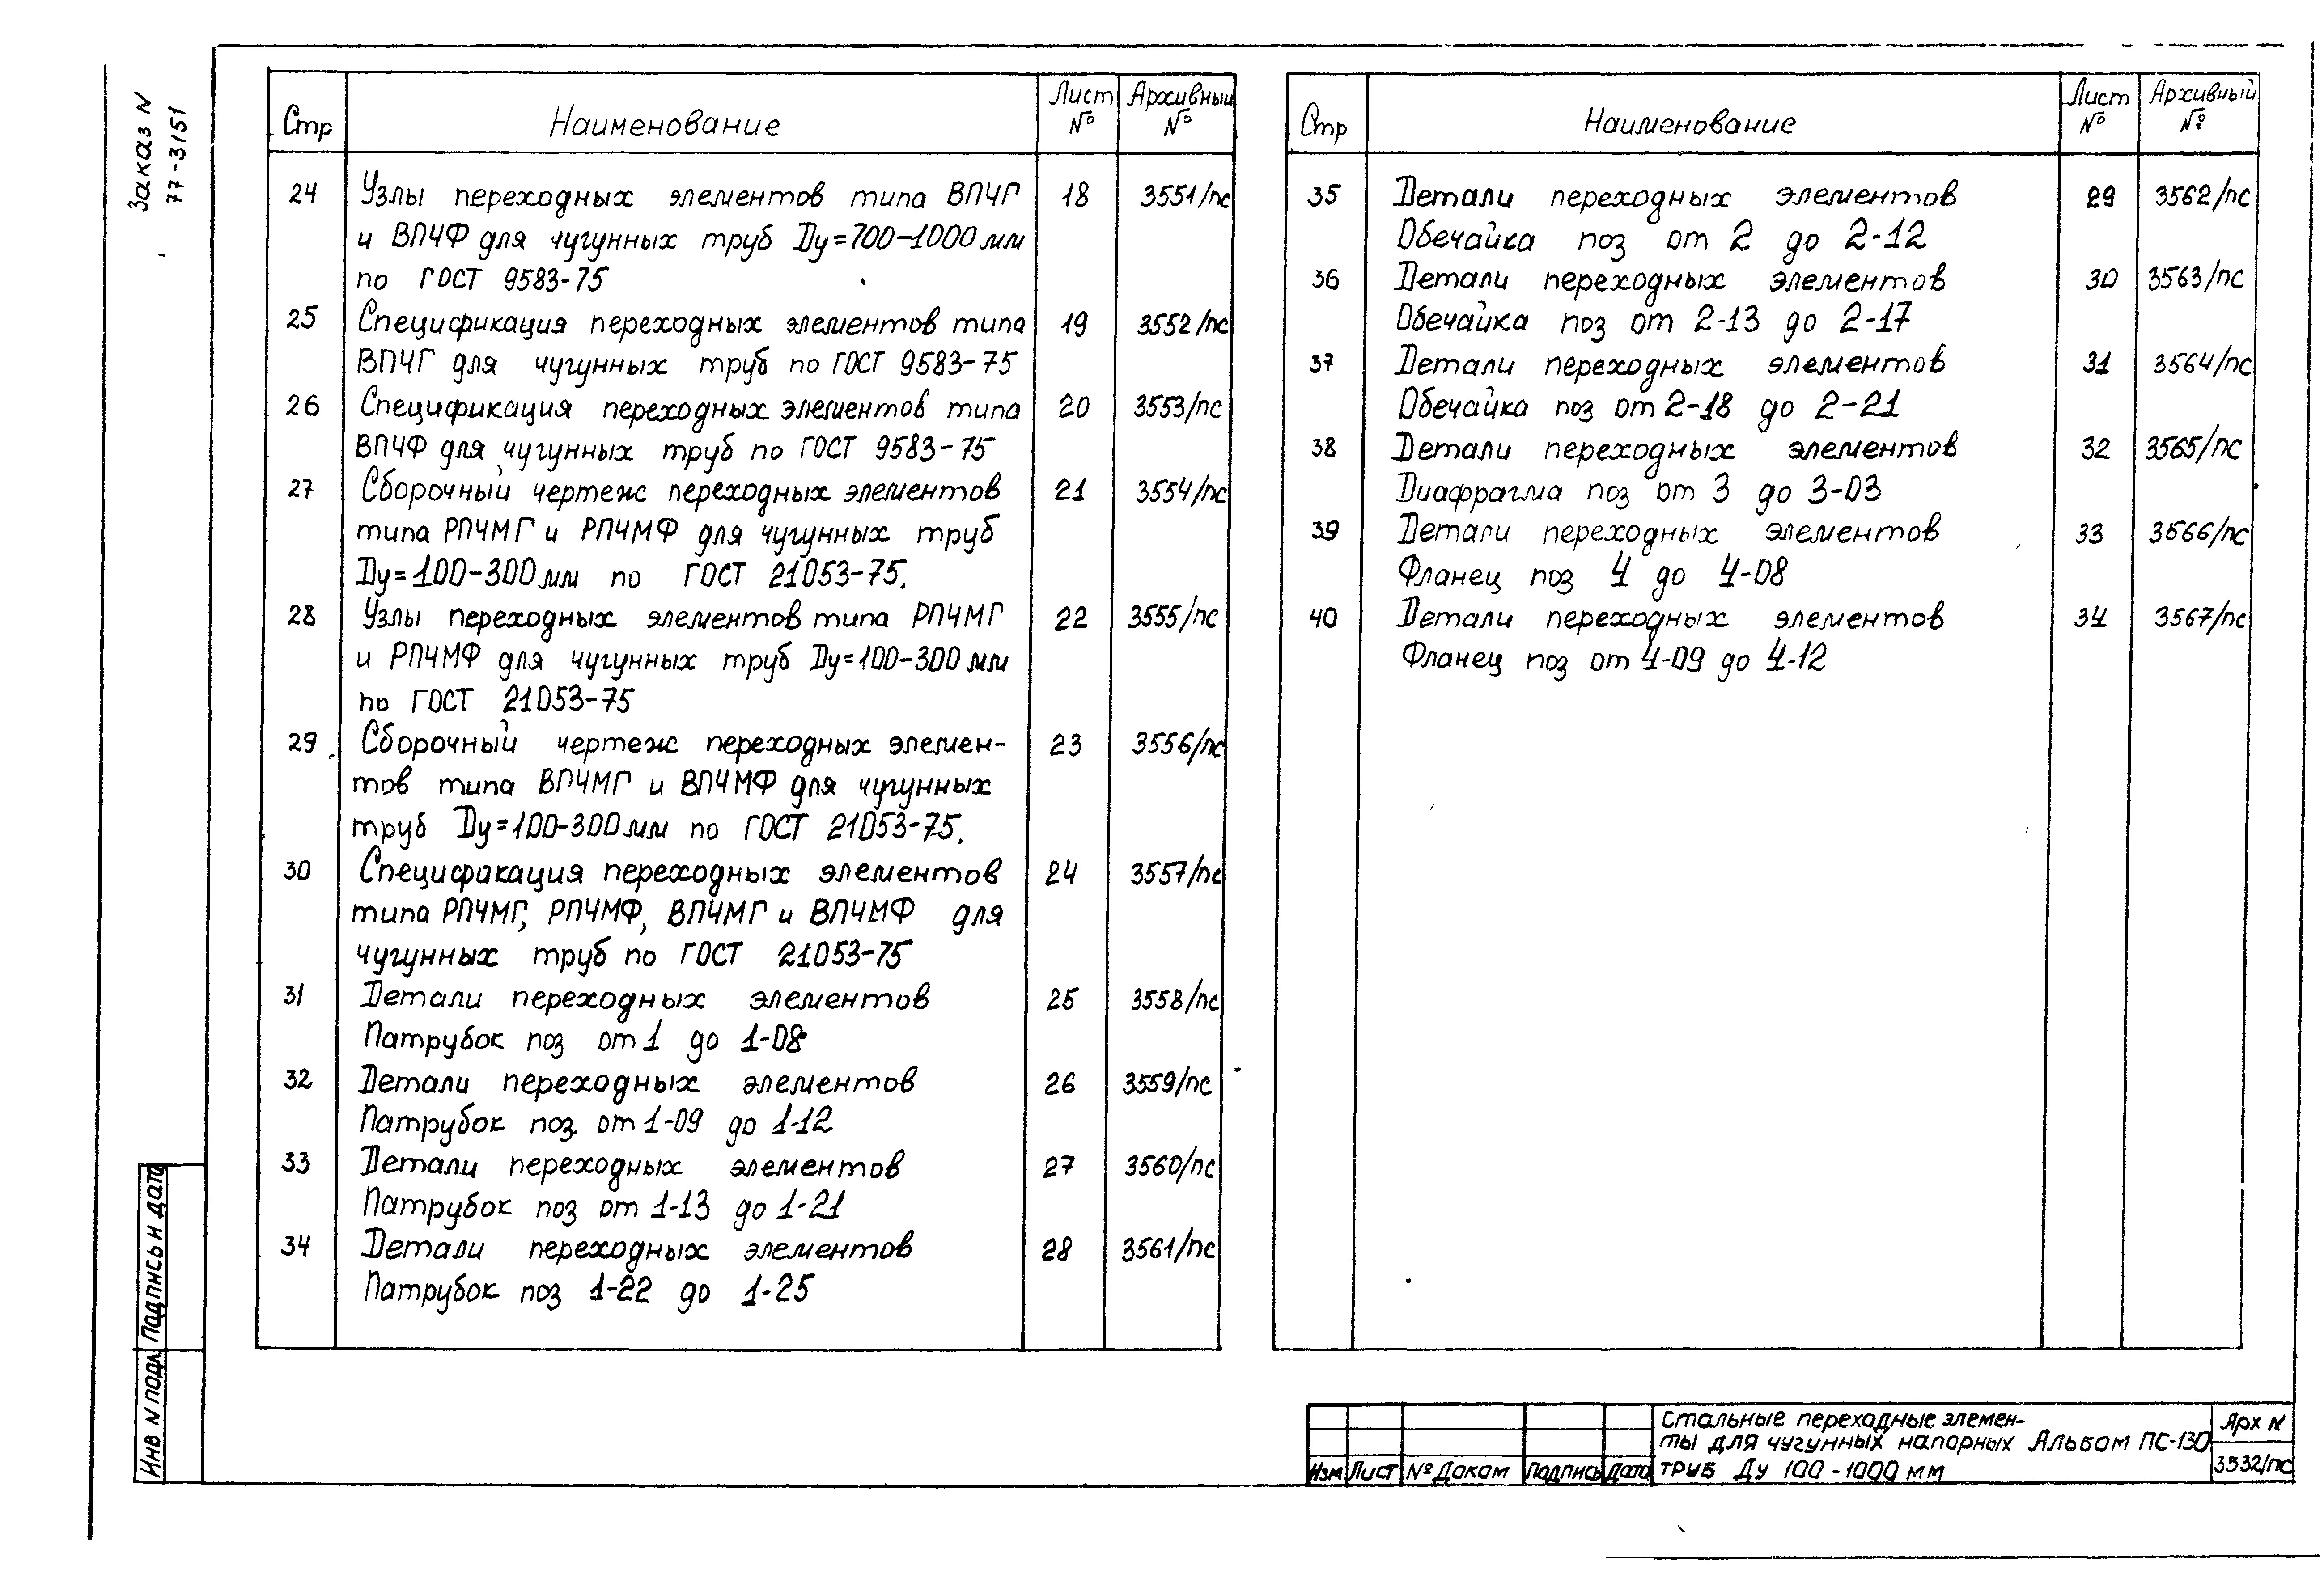 Заказ N
77-3151
Стр Наименование Лист № Архивный №
24 Узлы переходных элементов типа ВПЧГ 18 3551/пс
и ВПЧФ для чугунных труб Ду=700-1000 мм
по ГОСТ 9583-75
25 Спецификация переходных элементов типа 19 3552/пс
ВПЧГ для чугунных труб по ГОСТ 9583-75
26 Спецификация переходных элементов типа 20 3553/пс
ВПЧФ для чугунных труб по ГОСТ 9583-75
27 Сборочный чертеж переходных элементов 21 3554/пс
типа РПЧМГ и РПЧМФ для чугунных труб
Ду=100-300мм по ГОСТ 21053-75.
28 Узлы переходных элементов типа РПЧМГ 22 3555/пс
и РПЧМФ для чугунных труб Ду=100-300 мм
по ГОСТ 21053-75
29 Сборочный чертеж переходных элемен- 23 3556/пс
тов типа ВПЧМГ и ВПЧМФ для чугунных
труб Ду=100-300мм по ГОСТ 21053-75.
30 Спецификация переходных элементов 24 3557/пс
типа РПЧМГ, РПЧМФ, ВПЧМГ и ВПЧМФ для
чугунных труб по ГОСТ 21053-75
31 Детали переходных элементов 25 3558/пс
Патрубок поз от 1 до 1-08
32 Детали переходных элементов 26 3559/пс
Патрубок поз. от 1-09 до 1-12
33 Детали переходных элементов 27 3560/пс
Патрубок поз от 1-13 до 1-21
34 Детали переходных элементов 28 3561/пс
Патрубок поз 1-22 до 1-25
Стр Наименование Лист № Архивный №
35 Детали переходных элементов 29 3562/пс
Обечайка поз от 2 до 2-12
36 Детали переходных элементов 30 3563/пс
Обечайка поз от 2-13 до 2-17
37 Детали переходных элементов 31 3564/пс
Обечайка поз от 2-18 до 2-21
38 Детали переходных элементов 32 3565/пс
Диафрагма поз от 3 до 3-03
39 Детали переходных элементов 33 3566/пс
Фланец поз 4 до 4-08
40 Детали переходных элементов 34 3567/пс
Фланец поз от 4-09 до 4-12
Инв N подл Подпись и дата
Изм Лист № Докум Подпись Дата
Стальные переходные элемен-
ты для чугунных напорных Альбом ПС-130
труб Ду 100-1000 мм
Арх N
3532/пс